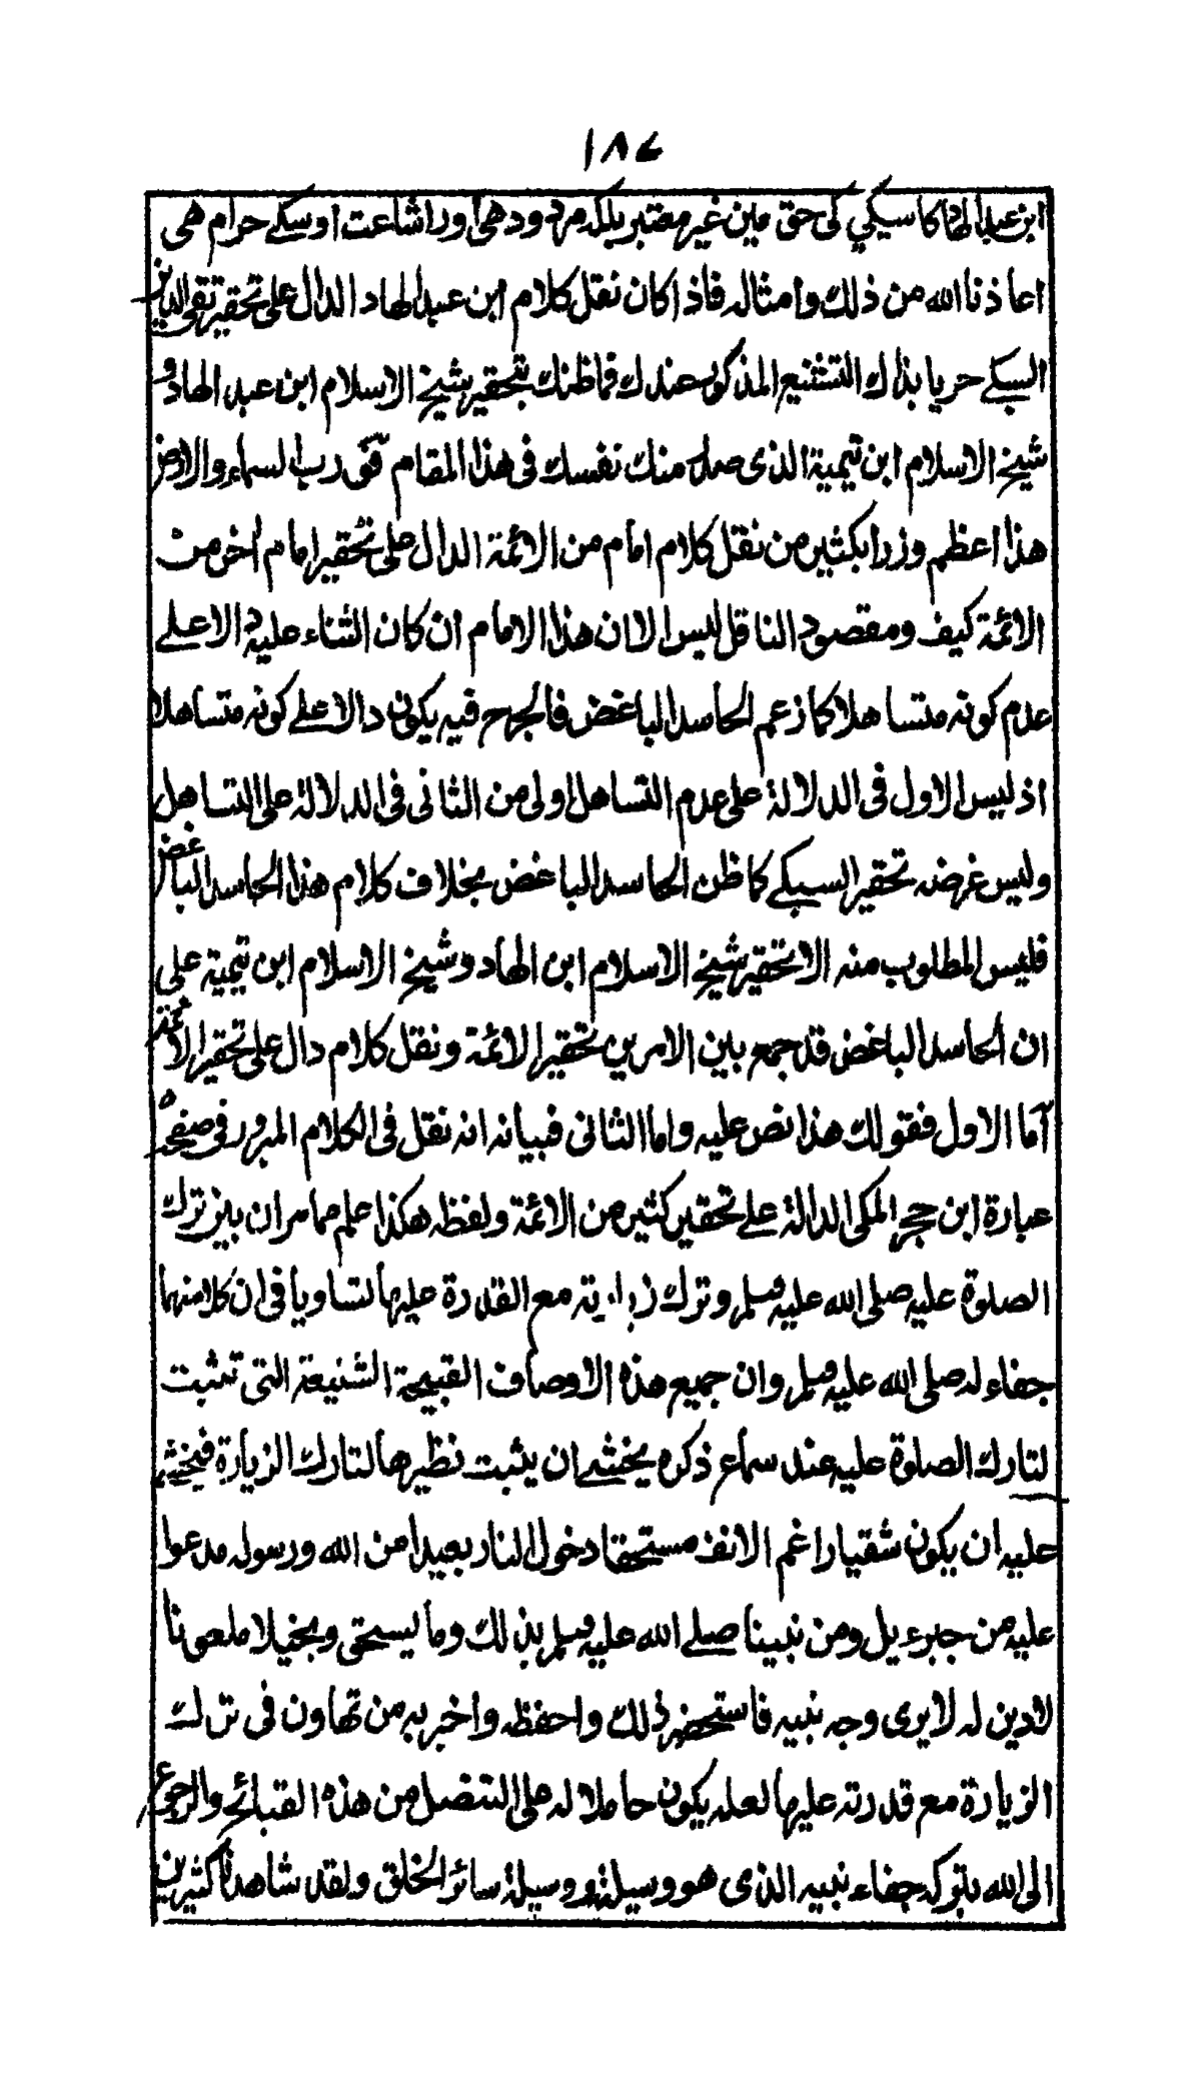 ١٨٤
ابن عبد الهاد کا سبکی کی حق مین غیر معتبر بلکہ مردود هی اور اشاعت اوسکے حرام هی
اعاذنا الله من ذلك وامثاله فاذا كان نقل كلام ابن عبد الهاد الدال على تحقير تقى الدين
السبكے حريا بذاك التشنيع المذكور عندك فما ظنك بتحقير شيخ الاسلام ابن عبد الهاد و
شيخ الاسلام ابن تيمية الذى صدر منك نفسك فى هذا المقام فو رب السماء والارض
هذا اعظم وزرا بكثير من نقل كلام امام من الائمة الدال على تحقير امام اخر من
الائمة كيف ومقصود الناقل ليس الا ان هذا الامام ان كان الثناء عليه دالا علے
عدم كونه متساهلا كما زعم الحاسد الباغض فالجرح فيه يكون دالا علے كونه متساهلا
اذ ليس الاول فى الدلالة على عدم التساهل اولى من الثانى فى الدلالة على التساهل
وليس غرضه تحقير السبكے كما ظن الحاسد الباغض بخلاف كلام هذا الحاسد الباغض
فليس المطلوب منه الا تحقير شيخ الاسلام ابن الهاد وشيخ الاسلام ابن تيمية على
ان الحاسد الباغض قد جمع بين الامرين تحقير الائمة ونقل كلام دال على تحقير الائمة
اما الاول فقولك هذا نص عليه واما الثانى فبيانه انه نقل فى الكلام المبرور فى صفحه
عبارة ابن حجر المكى الدالة علے تحقير كثير من الائمة ولفظه هكذا علم مما مر ان بين ترك
الصلوة عليه صلى الله عليه وسلم وترك زيارته مع القدرة عليها تساويا فى ان كلا منهما
جفاء له صلى الله عليه وسلم وان جميع هذه الاوصاف القبيحة الشنيعة التى تثبت
لتارك الصلوة عليه عند سماع ذكره يخشے ان يثبت نظيرها لتارك الزيارة فيخشى
عليه ان يكون شقيا راغم الانف مستحقا دخول النار بعيدا من الله ورسوله مدعوا
عليه من جبرءيل ومن نبينا صلے الله عليه وسلم بذلك وما يستحق وبخيلا ملعونا
لا دين له لا يرى وجه نبيه فاستحضر ذلك واحفظه واخبر به من تهاون فى ترك
الزيارة مع قدرته عليها لعله يكون حاملا له على التنصل من هذه القبائح والرجوع
الى الله بتركه جفاء نبيه الذى هو وسيلته ووسيلة سائر الخلق ولقد شاهدنا كثيرين